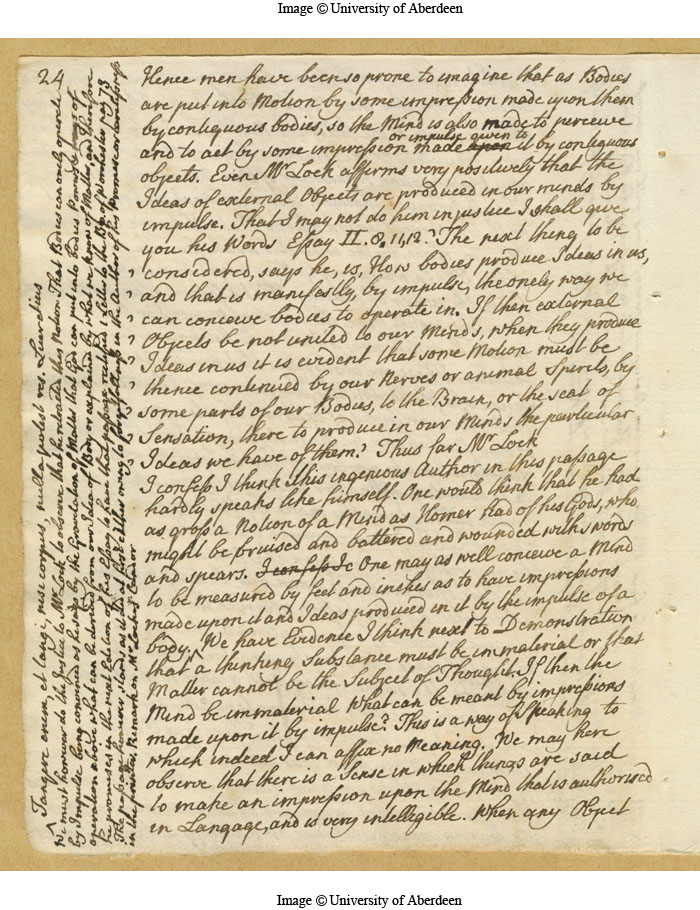 Image © University of Aberdeen
24
Hence men have been so prone to imagine that as Bodies
are put into Motion by some impression made upon them
by contiguous bodies, so the Mind is also made to perceive
or impulse given to
and to act by some impression made upon it by contiguous
objects. Even Mr Lock affirms very positively that the
Ideas of external Objects are produced in our minds by
impulse. That I may not do him injustice I shall give
you his Words Essay II. 8. 11, 12. The next thing to be
considered, says he, is, How bodies produce Ideas in us,
and that is manifestly, by impulse, the onely way we
can conceive bodies to operate in. If then external
Objects be not united to our Minds, when they produce
Ideas in us it is evident that some Motion must be
thence continued by our Nerves or animal Spirits, by
some parts of our Bodies, to the Brain, or the seat of
Sensation, there to produce in our Minds the particular
Ideas we have of them. Thus far Mr Lock
I confess I think this ingenious Author in this passage
hardly speaks like himself. One would think that he had
as gross a Notion of a Mind as Homer had of his Gods, who
might be bruised and battered and wounded with swords
and spears. I confess I c One may as well conceive a Mind
to be measured by feet and inches as to have impressions
made upon it and Ideas produced in it by the impulse of a
body. ^ We have Evidence I think next to Demonstration
that a thinking Substance must be immaterial or that
Matter cannot be the Subject of Thought. If then the
Mind be immaterial What can be meant by impressions
made upon it by impulse? This is a way of speaking to
which indeed I can affix no Meaning. We may here
observe that there is a Sense in which things are said
to make an impression upon the Mind that is authorised
in Langage, and is very intelligible. When any Object
Tangere enim, et tangi, nisi corpus, nulla potest res Lucretius
^ We must however do the Justice to Mr Lock to observe that he retracted this Notion That Bodies can only operate
by Impulse being convinced as he says by the Gravitation of Matter that God can put into bodies Powers & ways of
operation above what can be derived from our Idea of Body or explained by what we know of Matter, and therefore
he promises in the next Edition of his Essay to have that passage rectified 1 Letter to the Bp of Worchester p 73
The passage however stands as it did at first either owing to forgetfullness in the Author of his Promise or carelessness
in the Remark on Mr Lock's Editor
Image © University of Aberdeen